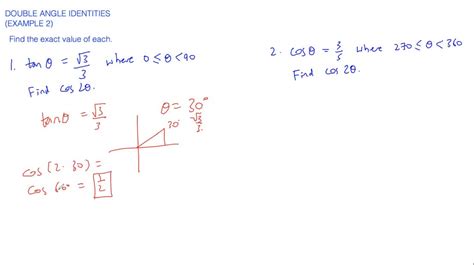 DOUBLE ANGLE IDENTITIES
(EXAMPLE 2)
Find the exact value of each.
1. tanθ = √3/3 where 0 ≤ θ < 90
Find cos 2θ.
tanθ = √3/3
θ = 30°
30°
√3/3
cos (2·30) =
cos 60° = 1/2
2. cosθ = 3/5 where 270 ≤ θ < 360
Find cos 2θ.